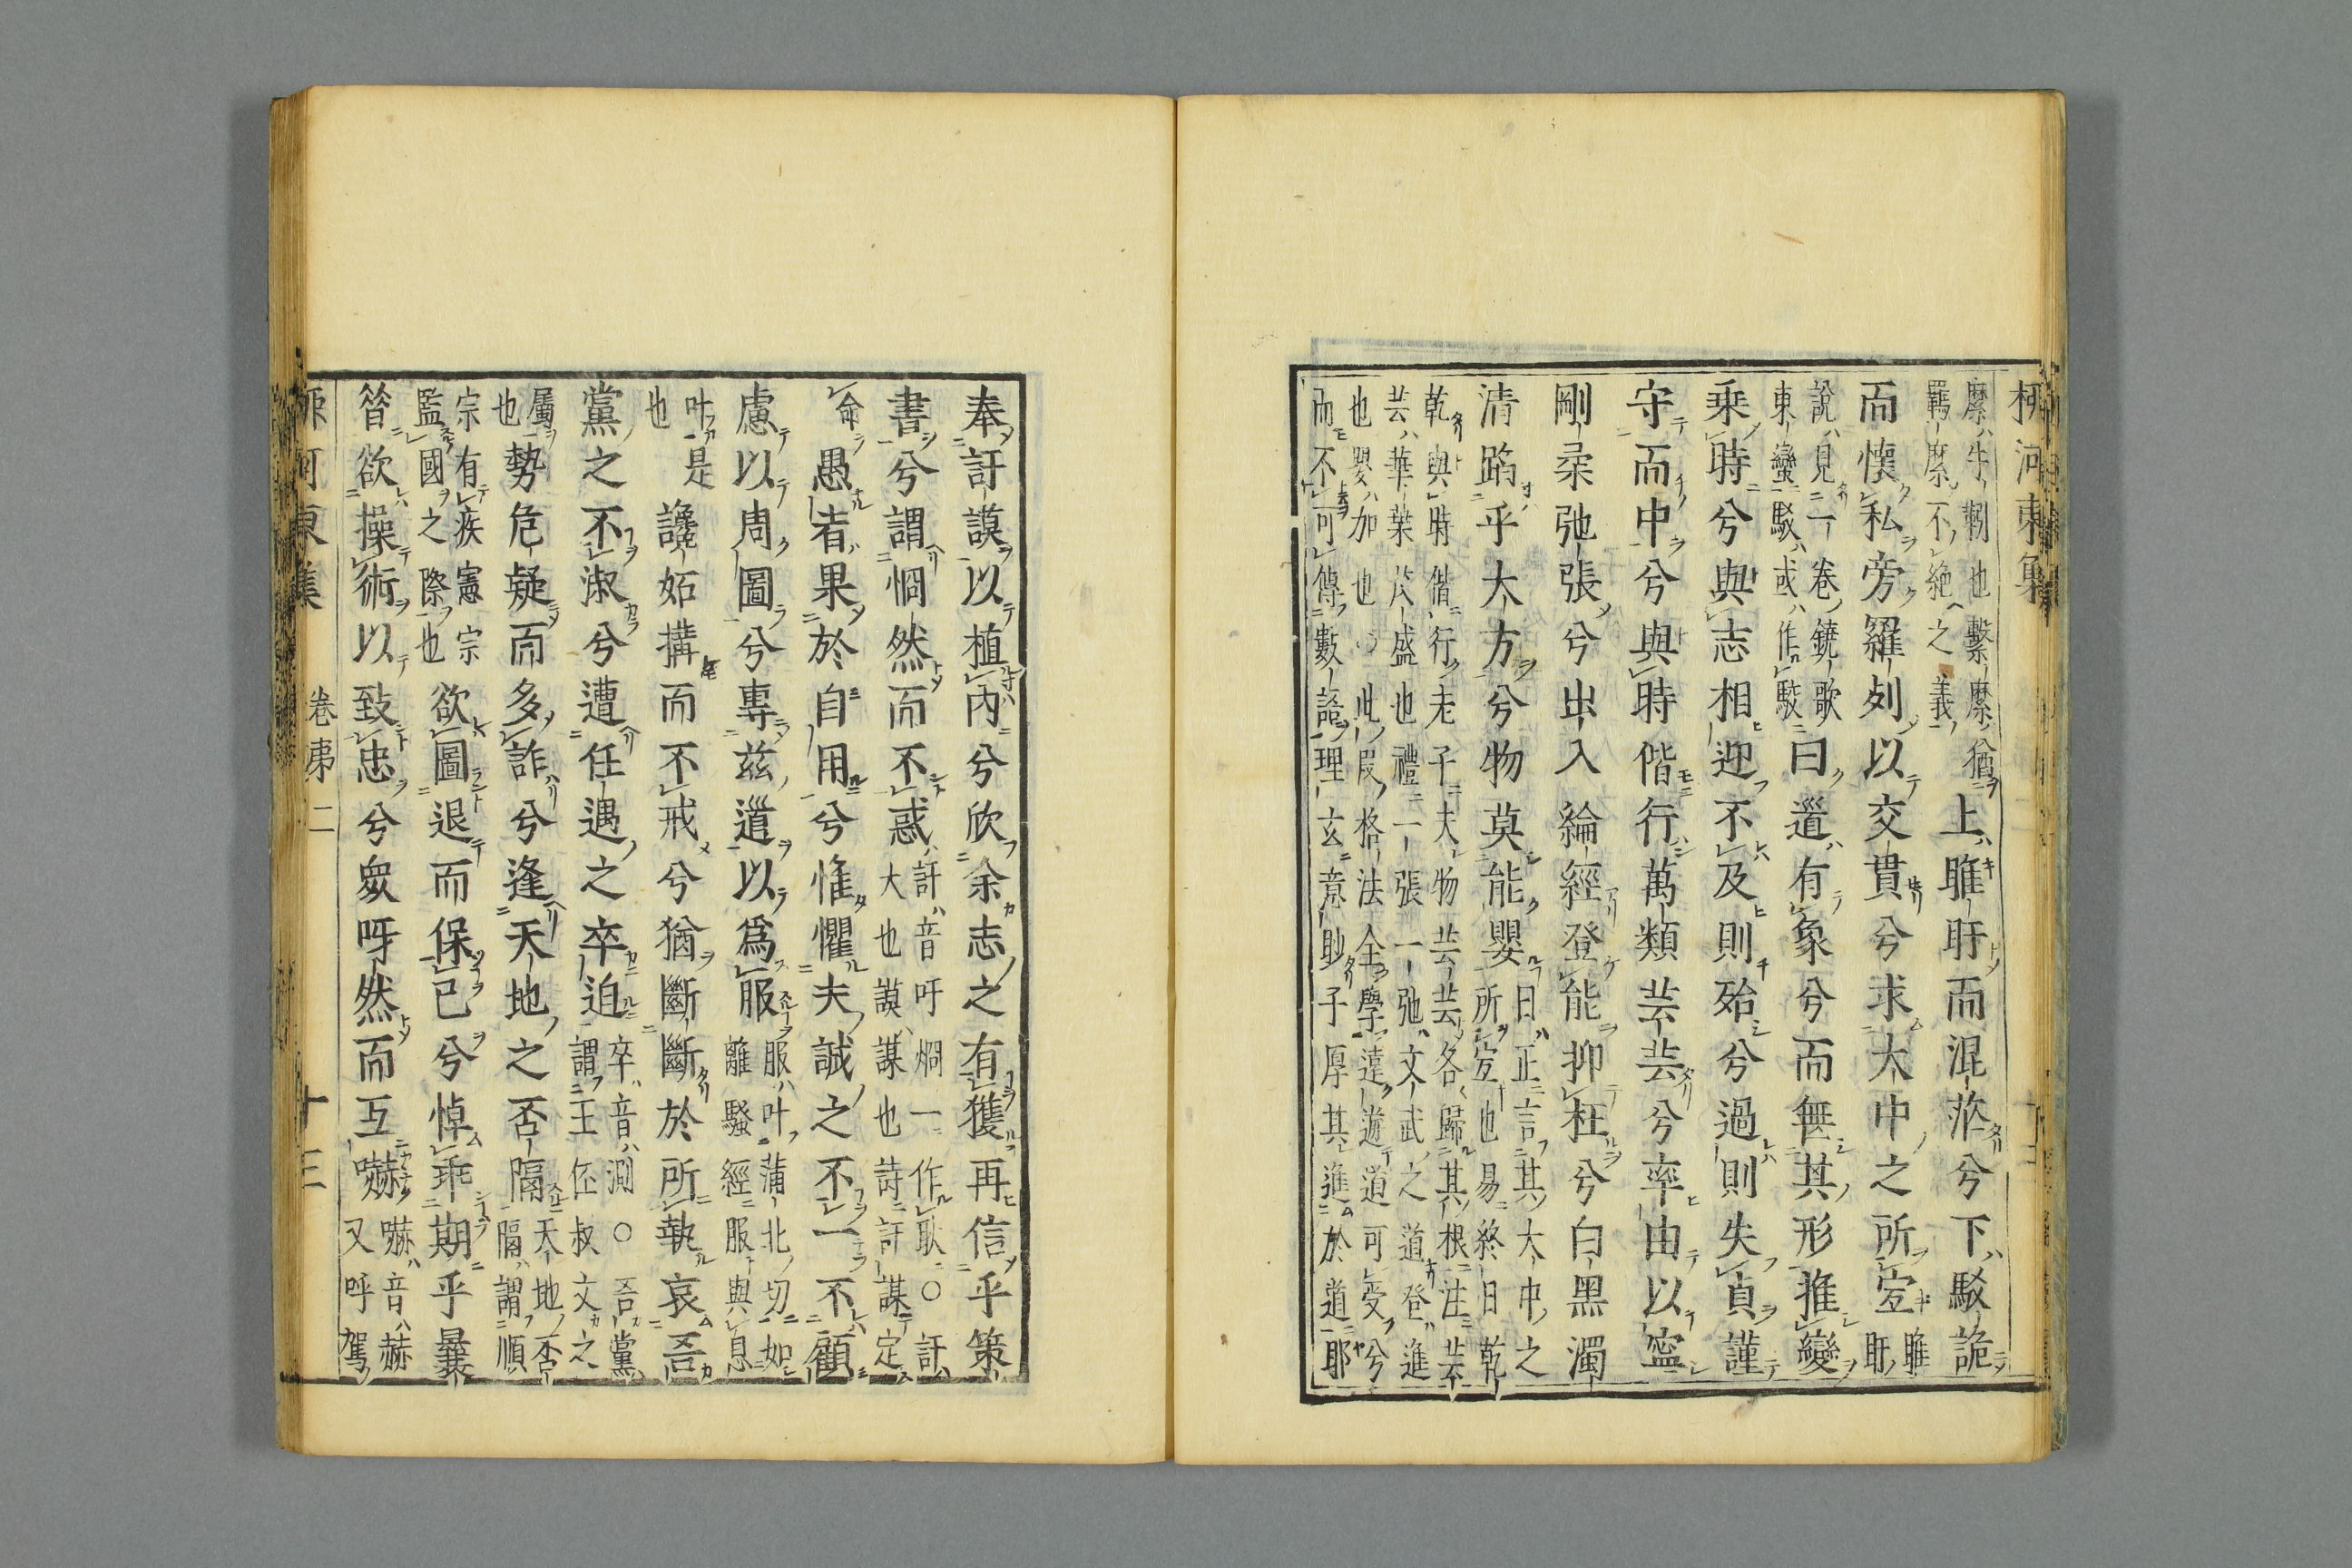 柳河東集
縻牛靷也繫縻猶
羈縻不絕之義
上睢盱而混茫兮下駁詭
而懷私旁羅列以交貫兮求大中之所宜
睢
盱
說見一卷鐃歌
東蠻駁或作駮
曰道有象兮而無其形推變
乘時兮與志相迎不及則殆兮過則失貞謹
守而中兮與時偕行萬類芸芸兮率由以寧
剛柔弛張兮出入綸經登能抑枉兮白黑濁
清蹈乎大方兮物莫能嬰
日正言其大中之
所宜也易終日乾
乾與時偕行老子夫物芸芸各歸其根注芸
芸華葉茂盛也禮一張一弛文武之道登進
也嬰加也○此叚格法全學遠遊道可受兮
而不可傳數語理玄意眇子厚其進於道耶
奉訏謨以植內兮欣余志之有獲再信乎策
書兮謂惘然而不惑
訏音吁烱一作耿○訏
大也謨謀也詩訏謀定
命愚者果於自用兮惟懼夫誠之不一不顧
慮以周圖兮專茲道以爲服
服叶蒲北切如
離騷經服與息
叶是
也
讒妬搆而不戒兮猶斷斷於所執哀吾
黨之不淑兮遭任遇之卒迫
卒音測○吾黨
謂王伾叔文之
屬
也
勢危疑而多詐兮逢天地之否隔
天地否
隔謂順
宗有疾憲宗
監國之際也
欲圖退而保已兮悼乖期乎曩
昝欲操術以致忠兮眾呀然而互嚇
嚇音赫
又呼駕
柳河東集 卷第二 十三